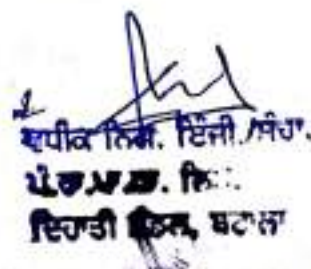 ਵਧੀਕ ਨਿਗ. ਇੰਜੀ./ਸੰਚਾ.
ਪੰ.ਰਾ.ਪਾ.ਕਾ. ਲਿ:.
ਦਿਹਾਤੀ ਮੰਡਲ, ਬਟਾਲਾ